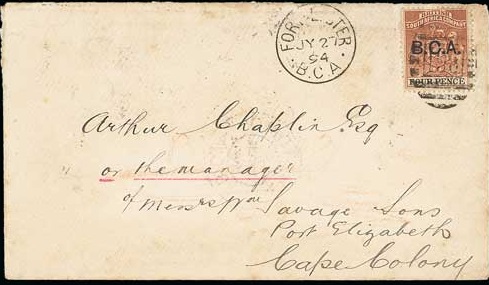 FORT LISTER
JY 27
94
B.C.A.
BRITISH
SOUTH AFRICA COMPANY
B.C.A.
FOUR PENCE
Arthur Chaplin Esq
or the manager
of Messrs Wm Savage Sons
Port Elizabeth
Cape Colony